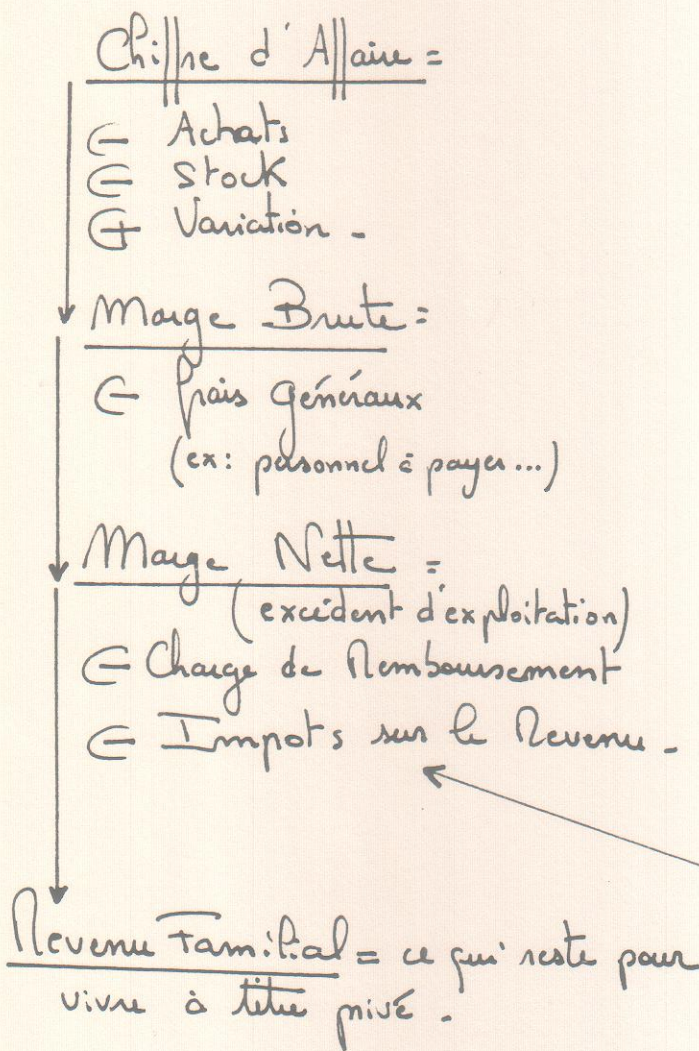 Chiffre d'Affaire =
⊖ Achats
⊖ Stock
⊕ Variation -
Marge Brute =
⊖ frais Généraux
(ex: personnel à payer...)
Marge Nette =
(excédent d'exploitation)
⊖ Charge de Remboursement
⊖ Impots sur le Revenu -
Revenu Familial = ce qui reste pour
vivre à titre privé -